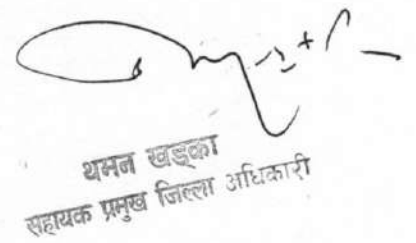 थमन खड्का
सहायक प्रमुख जिल्ला अधिकारी